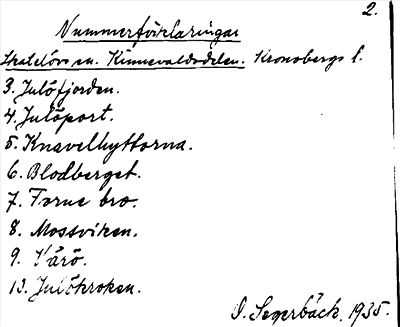 2.
Nummerförklaringar
Skatelövs sn. Kinnevaldsdelen. Kronobergs l.
3. Julöfjorden.
4. Julöport.
5. Knavelhyttorna.
6. Blodberget.
7. Torne bro.
8. Mossviken.
9. Kårö.
10. Julökroken.
S. Segerbäck. 1935.